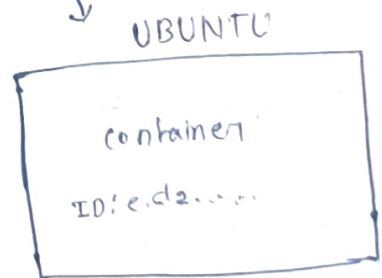 UBUNTU
container
ID: e.d2......